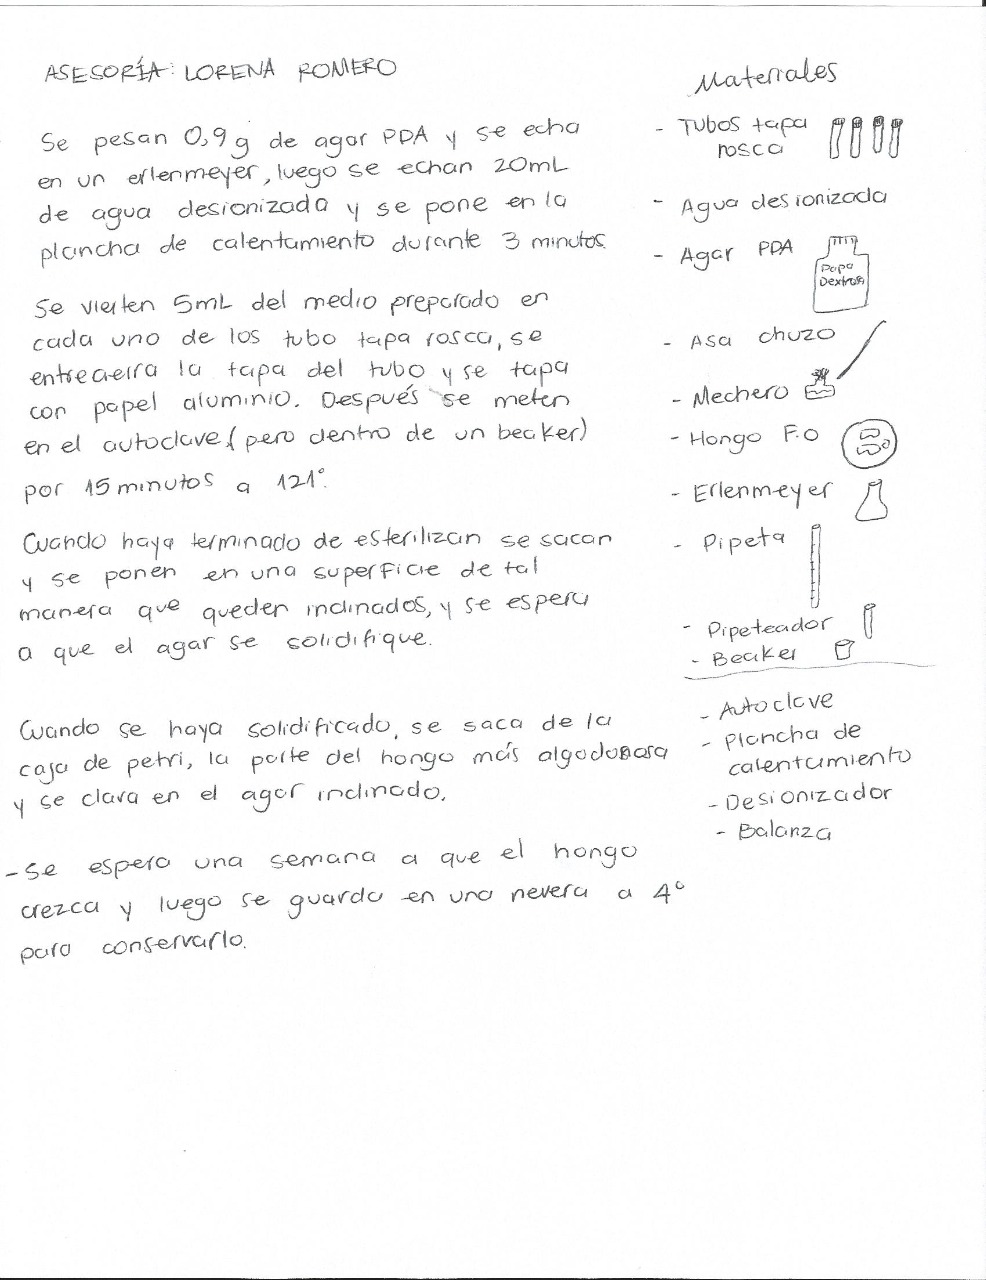 ASESORÍA: LORENA ROMERO
Se pesan 0,9 g de agar PDA y se echa
en un erlenmeyer, luego se echan 20mL
de agua desionizada y se pone en la
plancha de calentamiento durante 3 minutos.
Se vierten 5mL del medio preparado en
cada uno de los tubo tapa rosca, se
entrecierra la tapa del tubo y se tapa
con papel aluminio. Después se meten
en el autoclave (pero dentro de un beaker)
por 15 minutos a 121°.
Cuando haya terminado de esterilizan se sacan
y se ponen en una superficie de tal
manera que queden inclinados, y se espera
a que el agar se solidifique.
Cuando se haya solidificado, se saca de la
caja de petri, la parte del hongo más algodonosa
y se clava en el agar inclinado.
- Se espera una semana a que el hongo
crezca y luego se guarda en una nevera a 4°
para conservarlo.
Materiales
- Tubos tapa
rosca
- Agua desionizada
- Agar PDA
Papa
Dextrosa
- Asa chuzo
- Mechero
- Hongo F.O
- Erlenmeyer
- Pipeta
- Pipeteador
- Beaker
- Autoclave
- Plancha de
calentamiento
- Desionizador
- Balanza